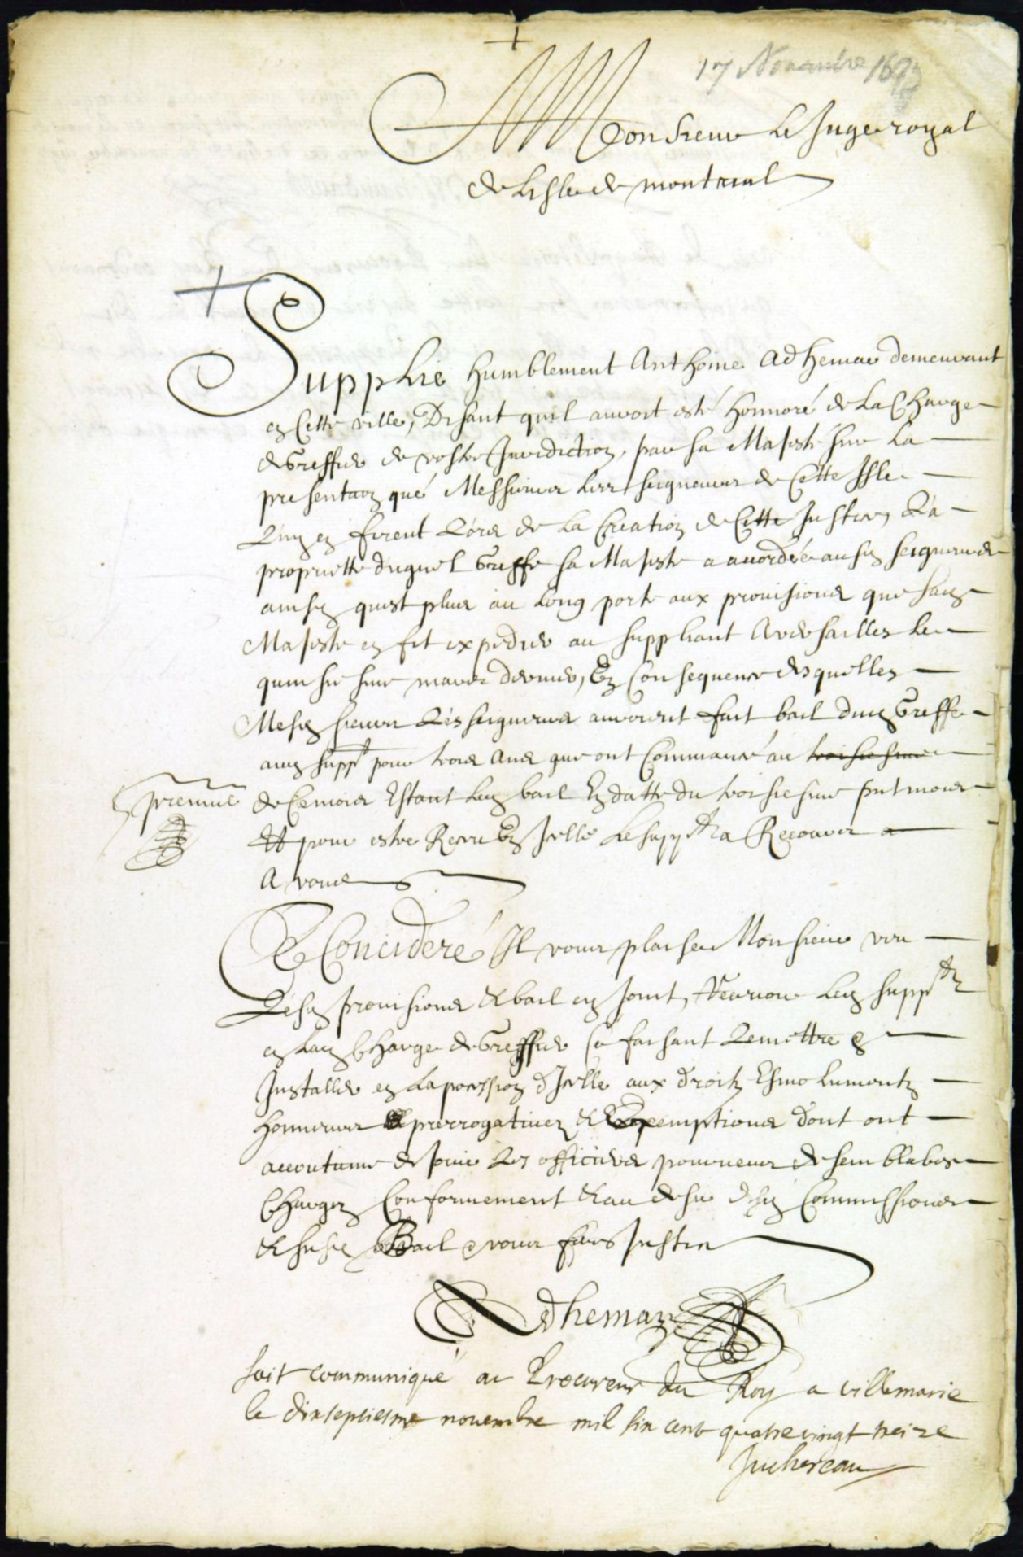 17 Novembre 1693
Monsieur Le Juge royal
de Lisle de montreal
Supplie humblement Anthoine Adhemar demeurant
en Cette ville, Disant quil auroit esté honnoré de La Charge
de Greffier de vostre Jurediction, par sa Majesté sur La
presentaon que Messieurs Les seigneurs de Cette Isle
Luy en firent Lors de La Creation de Cette Justice, La
proprietté duquel Greffe sa Majesté a accordée ausd seigneurs
ainsy quest plus au Long porté aux provisions que sad
Majesté en fit expedier au suppliant A versailles Le
quinsie sme mars dernier, En Consequence desquelles
Mesd sieurs Les seigneurs auroient fait bail dud Greffe
aud suppt pour trois ans que ont Commancé au troisiesme
premier
de Ce mois Estant Led bail En datte du troisiesme put mois
Et pour estre Receu En Icelle Le suppt a Recours
A vous
Ce Considéré Il vous plaise Monsieur veu
Lesd provisions & bail cy Joint, Recevoir Led suppt
en Lad Charge de Greffier Ce faisant Le mettre &
Installer en La pocession d'Icelle aux droits Esmoluments
honneurs & prerrogatives & Exemptions dont ont
accoutume de Jouir Les officiers pourveus de semblables
Charges Conformement & au desir desd Commissions
& susd Bail & vous fairés Justice
Adhemar
soit communiqué au Procureur du Roy a villemarie
le dixseptiesme novembre mil six cent quatre vingt treize
Juchereau